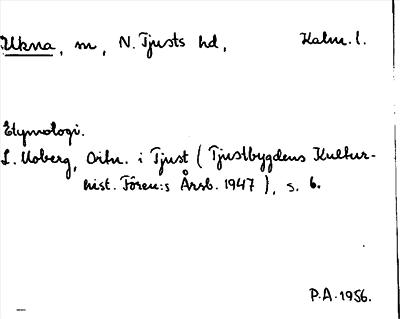 Ukna, m, N. Tjusts hd, Kalm. l.
Etymologi.
L. Moberg, Ortn. i Tjust (Tjustbygdens Kultur-
hist. Fören:s Årsb. 1947), s. 6.
P.A. 1956.